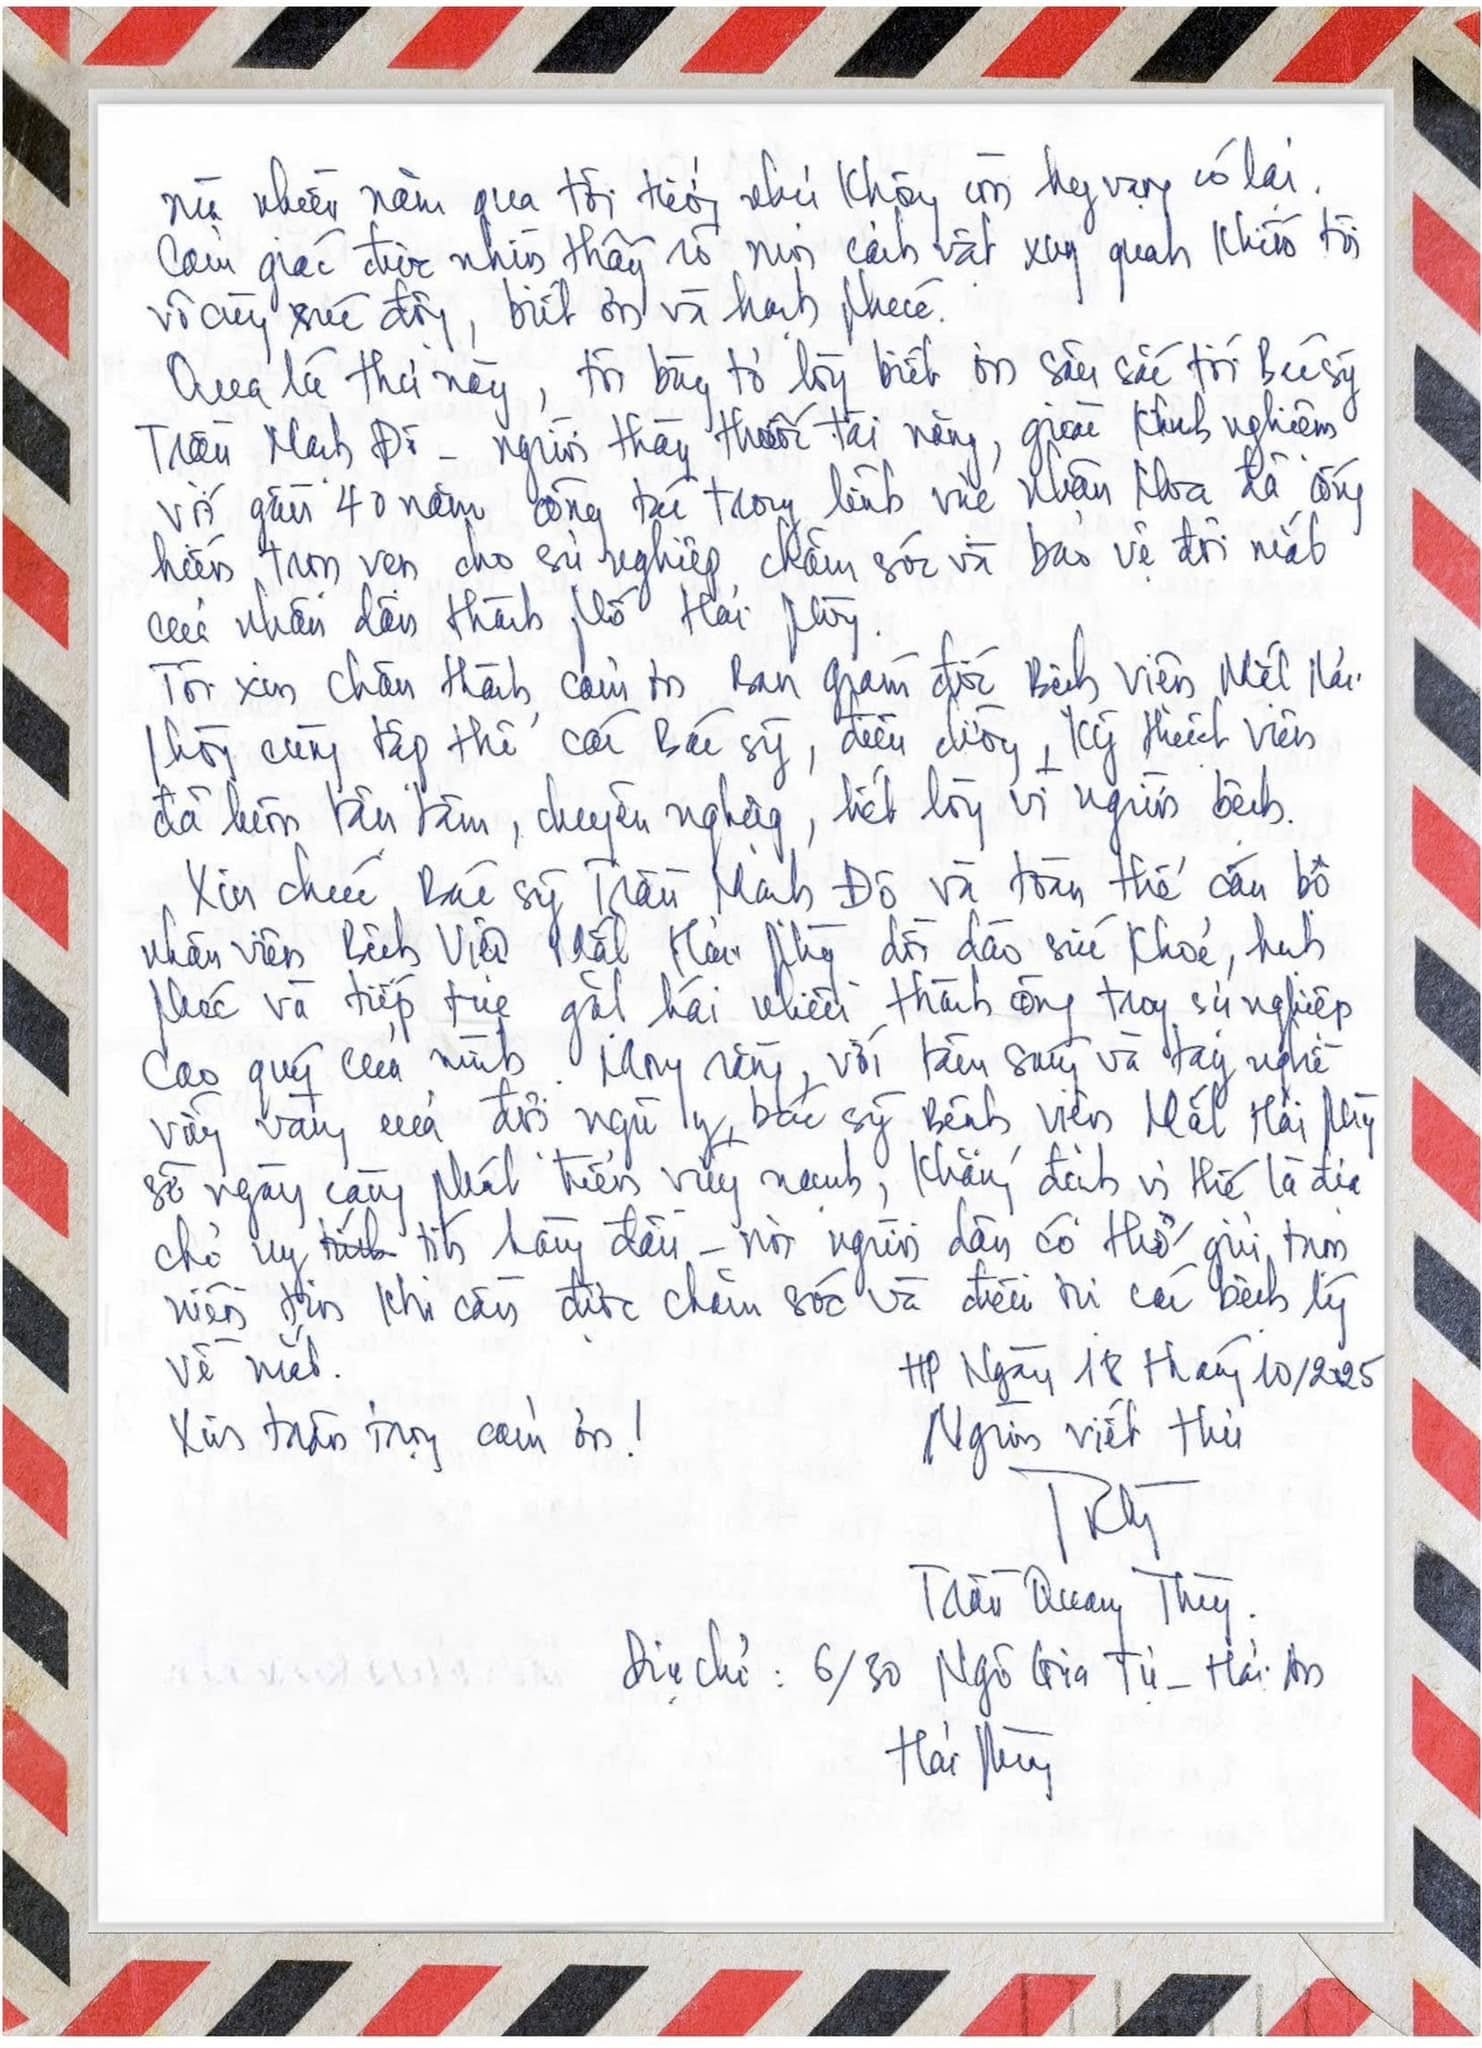 mà nhiều năm qua tôi tưởng như không còn hy vọng có lại.
Cảm giác được nhìn thấy rõ mọi cảnh vật xung quanh khiến tôi
vô cùng xúc động, biết ơn và hạnh phúc.
Qua lá thư này, tôi bày tỏ lòng biết ơn sâu sắc tới Bác sỹ
Trần Mạnh Đô - người thầy thuốc tài năng, giàu kinh nghiệm
với gần 40 năm công tác trong lĩnh vực nhãn khoa đã cống
hiến trọn vẹn cho sự nghiệp chăm sóc và bảo vệ đôi mắt
của nhân dân thành phố Hải Phòng.
Tôi xin chân thành cảm ơn Ban giám đốc Bệnh viện Mắt Hải
Phòng cùng tập thể các Bác sỹ, điều dưỡng, kỹ thuật viên
đã luôn tận tâm, chuyên nghiệp, hết lòng vì người bệnh.
Xin chúc Bác sỹ Trần Mạnh Đô và toàn thể cán bộ
nhân viên Bệnh Viện Mắt Hải Phòng dồi dào sức khoẻ, hạnh
phúc và tiếp tục gặt hái nhiều thành công trong sự nghiệp
cao quý của mình. Mong rằng, với tâm sáng và tay nghề
vững vàng của đội ngũ y, bác sỹ Bệnh viện Mắt Hải Phòng
sẽ ngày càng phát triển vững mạnh, khẳng định vị thế là địa
chỉ uy tín hàng đầu - nơi người dân có thể gửi trọn
niềm tin khi cần được chăm sóc và điều trị các bệnh lý
về mắt.
HP Ngày 18 tháng 10/2025
Xin trân trọng cảm ơn!
Người viết thư
Trần Quang
Địa chỉ: 6/30 Ngô Gia Tự - Hải An
Hải Phòng